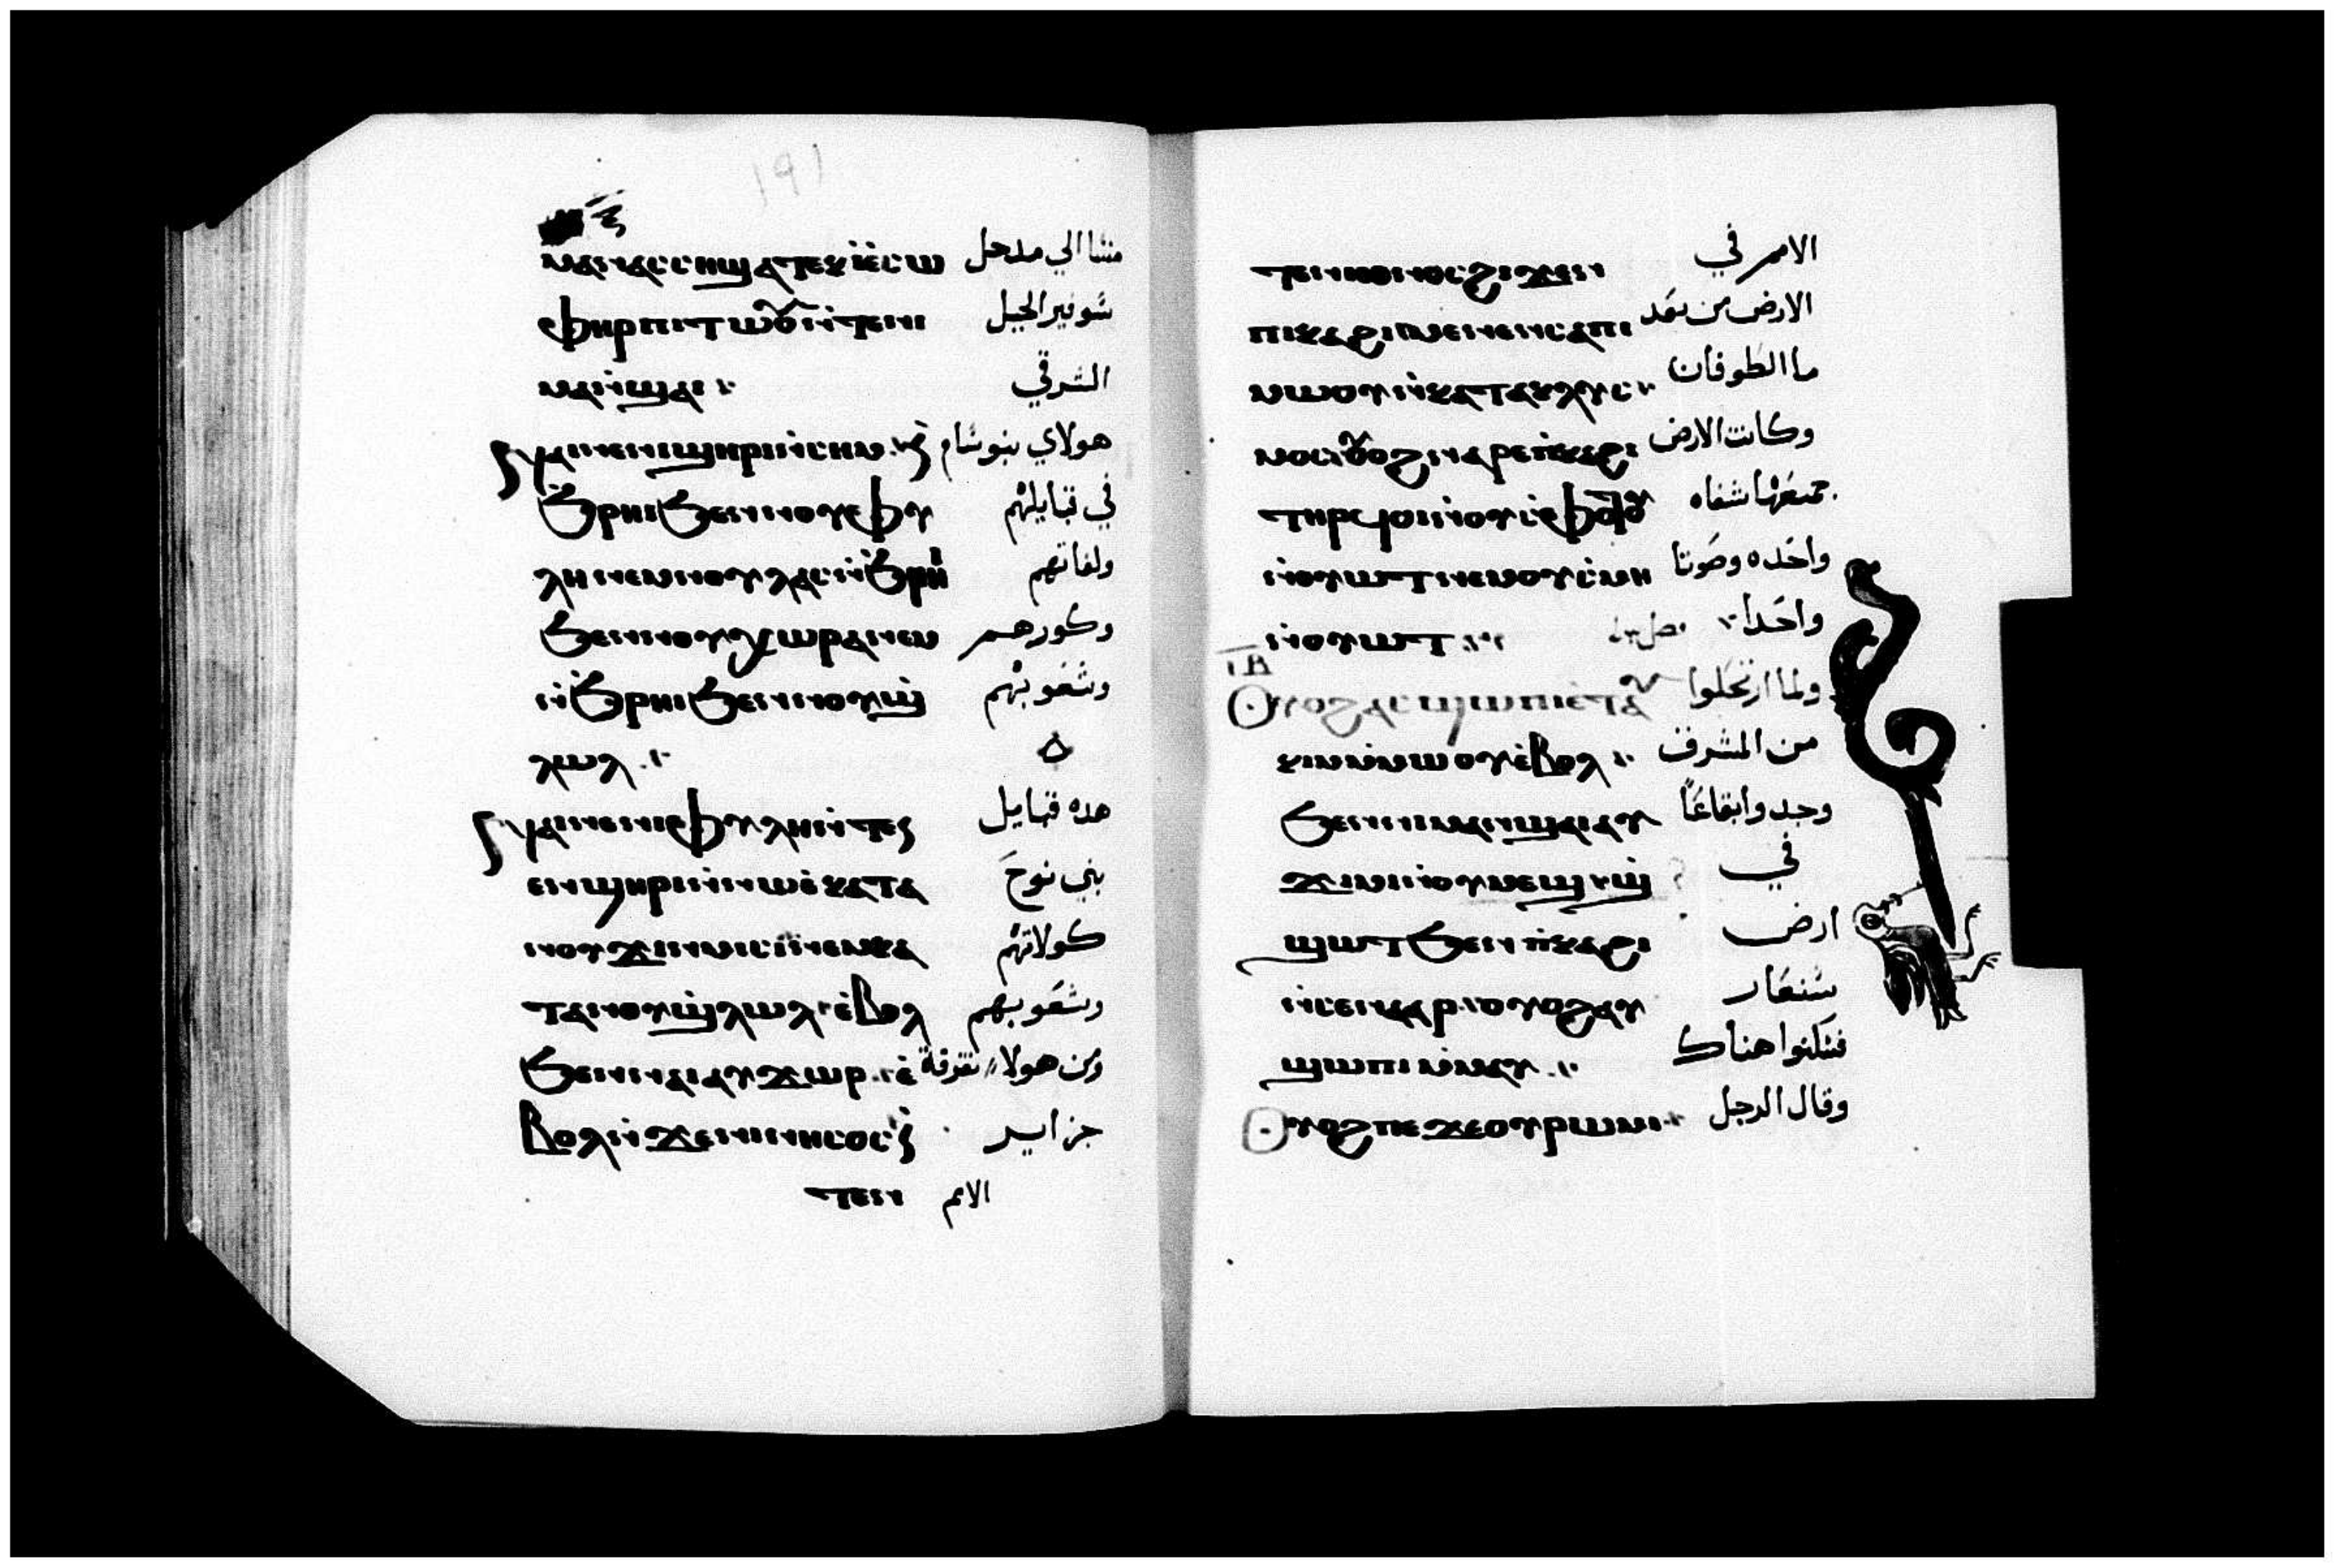 ⲙⲁⲛⲁⲥⲥⲏϣⲁⲧⲉⲕⲓⲉ̀ⲥⲱ منشا الي مدحل
ⲫⲏⲣⲡⲓⲧⲱⲟⲩⲛ̀ⲧⲉⲛⲓ شوفير الجبل
ⲙⲁⲛ̀ϣⲁⲓ الشرقي
ⲛⲁⲓⲛⲉⲛⲉⲛϣⲏⲣⲓⲛ̀ⲥⲏⲙ ⲛ̀ هولاي بنو شام
ϧⲣⲏⲓϧⲉⲛⲛⲟⲩⲫⲩ في قبايلهم
ⲗⲏⲛⲉⲙⲛⲟⲩⲗⲁⲥⲛ̀ϧⲣⲏⲓ ولغاتهم
ϧⲉⲛⲛⲟⲩⲭⲱⲣⲁⲛⲉⲙ وكورهم
ⲛ̀ϧⲣⲏⲓϧⲉⲛⲛⲟⲩϣ̀ وشعوبهم
ⲗⲱⲗ
ⲛⲁⲓⲛⲉⲛⲓⲫⲩⲗⲏⲛ̀ⲧⲉ هده قبايل
ⲉⲛϣⲏⲣⲓⲛ̀ⲛⲱⲉ̀ⲕⲁⲧⲁ بني نوح
ⲛⲟⲩϫⲓⲛⲙⲓⲥⲓⲛⲉⲙⲕⲁ كولاتهم
ⲧⲁⲛⲟⲩϣ̀ⲗⲱⲗ ⲉ̀ⲃⲟⲗ وشعوبهم
ϧⲉⲛⲛⲁⲓⲁⲩϫⲱⲣ ⲉ̀ ومن هولاء تفرقة
ⲃⲟⲗⲛ̀ϫⲉⲛⲓⲛⲏⲥⲟⲥⲛ̀ جزاير
ⲧⲉⲛ الامم
ⲧⲉⲛⲓⲉⲑⲛⲟⲥϩⲓϫⲉⲛ الامم في
ⲡⲓⲕⲁϩⲓⲙⲉⲛⲉⲛⲥⲁⲡⲓ الارض من بعد
ⲙⲱⲟⲩⲛ̀ⲕⲁⲧⲁⲕⲗⲩⲥ ما الطوفان
ⲙⲟⲥⲟⲩⲟϩⲛⲁⲣⲉⲡ̀ⲕⲁϩⲓ وكانت الارض
ⲧⲏⲣϥⲟⲓⲛ̀ⲟⲩⲥ̀ⲫⲟⲧⲟⲩ جميعها شفاه
ⲛ̀ⲟⲩⲱⲧⲛⲉⲙⲟⲩⲥ̀ⲙⲏ واحده وصوتا
ⲛ̀ⲟⲩⲱⲧ واحدا
ⲓⲁ̅
Ⲟⲩⲟϩⲁⲥϣⲱⲡⲓⲉ̀ⲧⲁⲩ ولما ارتحلوا
ⲕⲓⲙⲙ̀ⲙⲱⲟⲩⲉ̀ⲃⲟⲗ من المشرق
ϧⲉⲛⲛⲓⲙⲁⲛϣⲁⲓⲁⲩ وجدوا بقاعًا
ϫⲓⲙⲓⲛ̀ⲟⲩⲙⲉϣϣ̀ في
ϣⲱⲧϧⲉⲛⲡ̀ⲕⲁϩⲓ ارض
ⲛ̀ⲥⲉⲛⲁⲁⲣ ⲟⲩⲟϩⲁⲩ شنعار
ϣⲱⲡⲓⲙ̀ⲙⲁⲩ فسكنوا هناك
Ⲟⲩⲟϩⲡⲉϫⲉⲟⲩⲣⲱⲙⲓ وقال الرجل